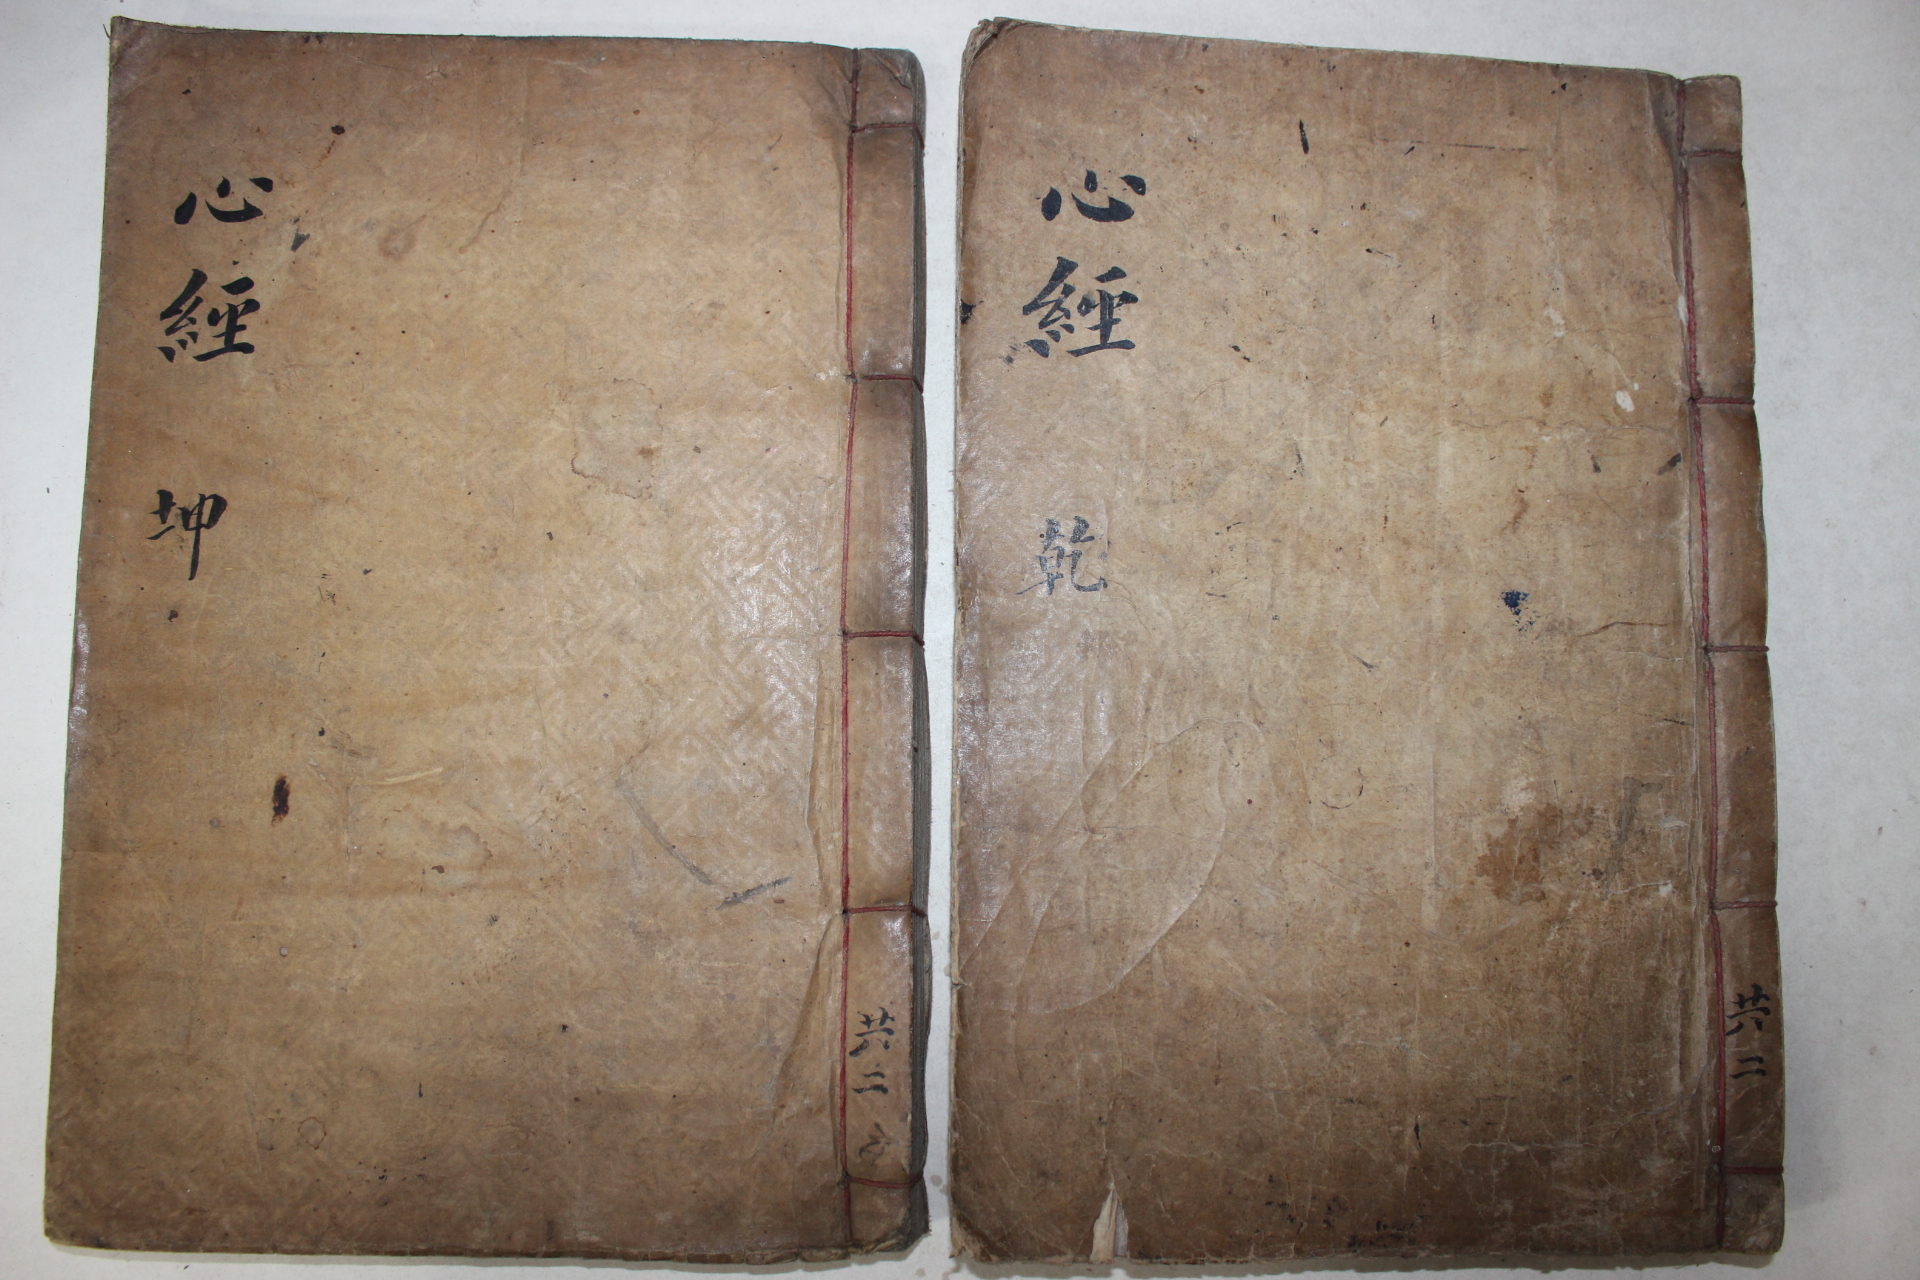 心經 乾
共二
心經 坤
共二